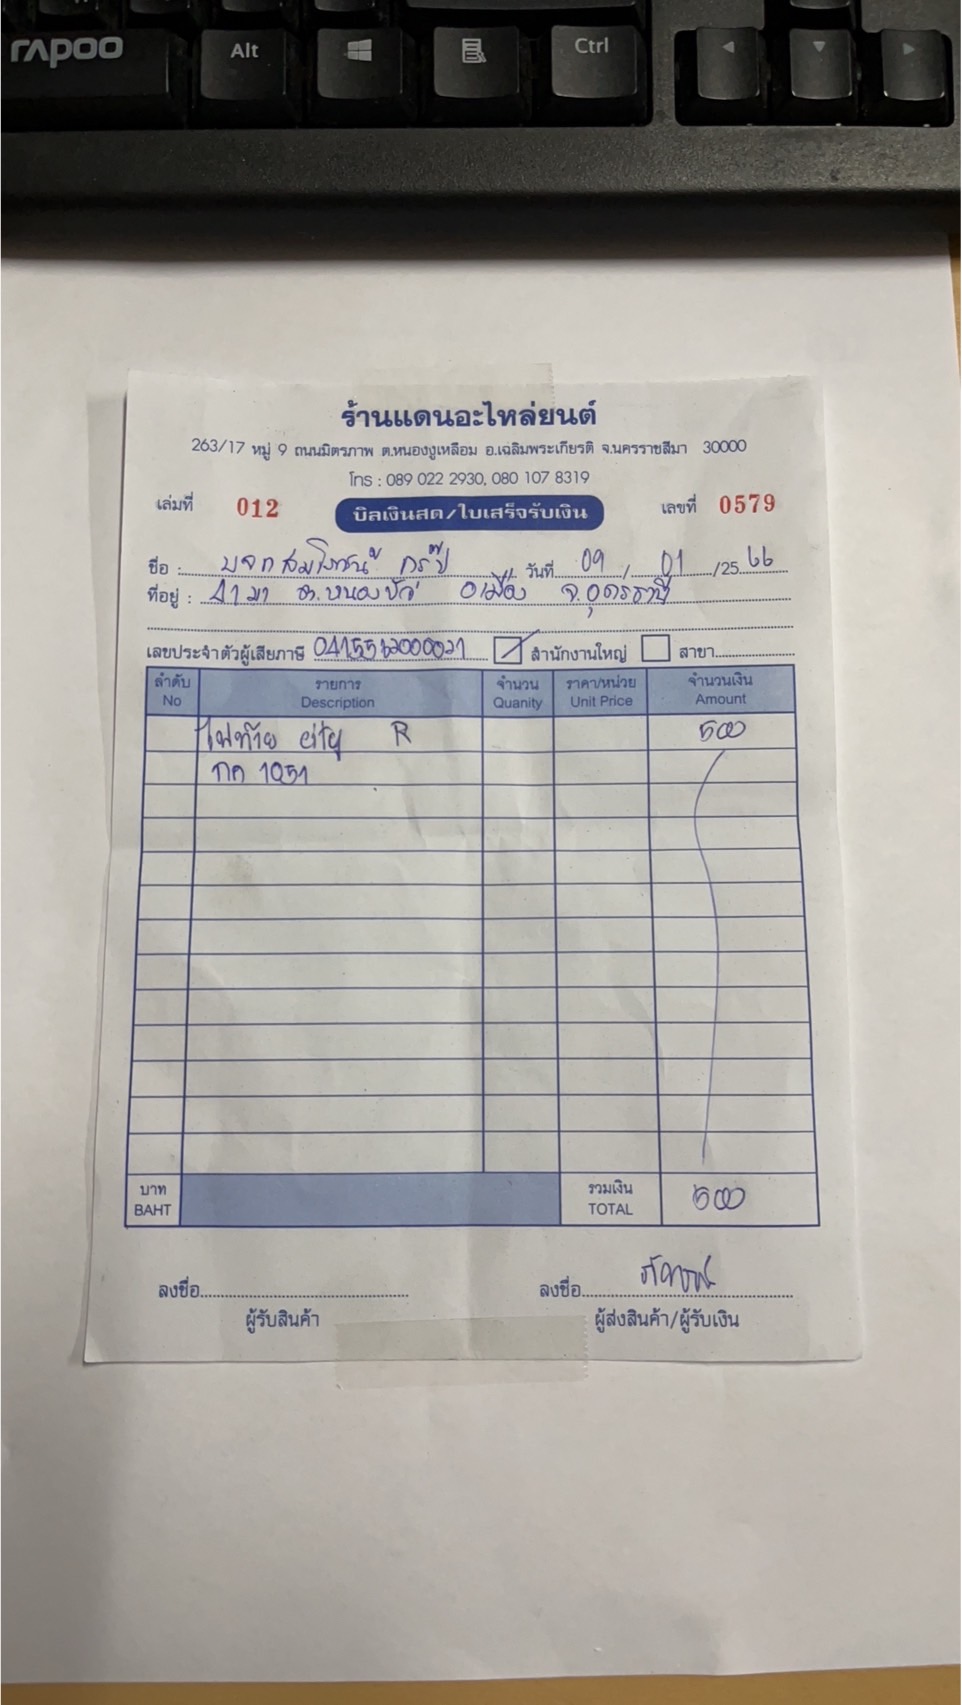 rapoo Alt Ctrl
ร้านแดนอะไหล่ยนต์
263/17 หมู่ 9 ถนนมิตรภาพ ต.หนองงูเหลือม อ.เฉลิมพระเกียรติ จ.นครราชสีมา 30000
โทร : 089 022 2930, 080 107 8319
เล่มที่ 012 บิลเงินสด/ใบเสร็จรับเงิน เลขที่ 0579
ชื่อ : บจก กรุ๊ป วันที่ 09 / 01 /25 66
ที่อยู่ : ต.หนองบัว อ.เมือง จ.อุดรธานี
เลขประจำตัวผู้เสียภาษี สำนักงานใหญ่ สาขา
ลำดับ รายการ จำนวน ราคา/หน่วย จำนวนเงิน
No Description Quanity Unit Price Amount
ไฟท้าย city R 500
กค 1051
บาท รวมเงิน
BAHT TOTAL 500
ลงชื่อ ลงชื่อ
ผู้รับสินค้า ผู้ส่งสินค้า/ผู้รับเงิน